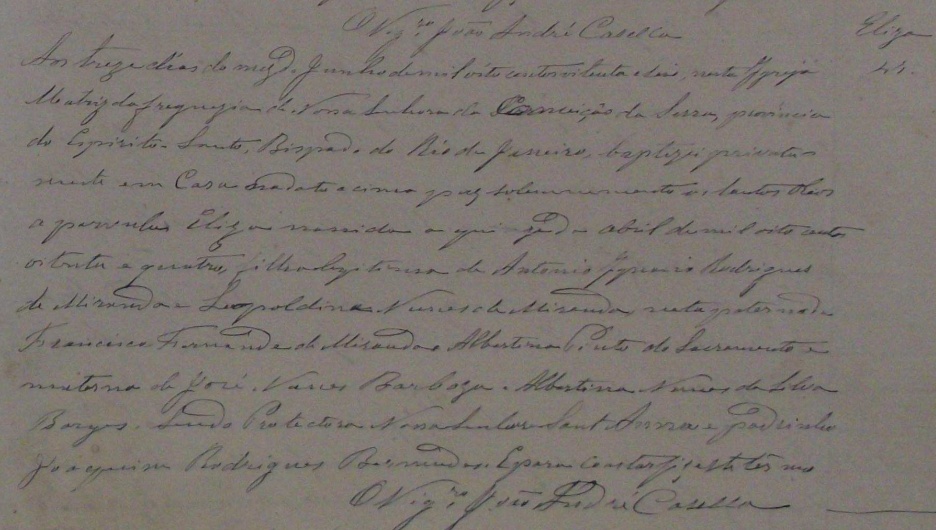 O Vigro João André Casella
Eliza
Aos treze dias do mez de Junho de mil oito centos oitenta e seis, nesta Igreja
Matriz da freguezia de Nossa Senhora da Conceição da Serra, provincia
do Espirito-Santo, Bispado do Rio de Janeiro, baptizei privata
mente em Casa e puz solemnemente os Santos Oleos
a parvula Eliza nascida a quinze de abril de mil oito centos
oitenta e quatro, filha legitima de Antonio Ignacio Rodrigues
de Miranda e Leopoldina Nunes de Miranda neta paterna de
Francisco Fernande de Miranda e Albertina Pinto do Sacramento e
materna de José Nunes Barboza e Albertina Nunes da Silva
Borges. Sendo Protectora Nossa Senhora Sant'Anna e padrinho
Joaquim Rodrigues. E para constar fiz este termo
O Vigro João André Casella